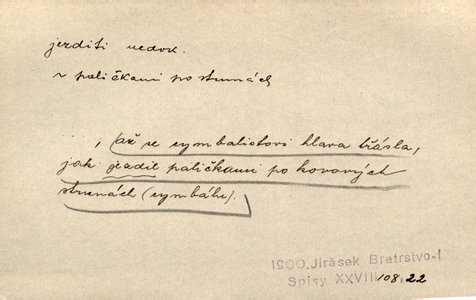 jezditi nedok.
~ paličkami po strunách
; až se cymbalistovi hlava třásla,
jak jezdil paličkami po kovových
strunách (cymbálu).
1900. Jirásek Bratrstvo-I
Spisy XXVIII 108, 22